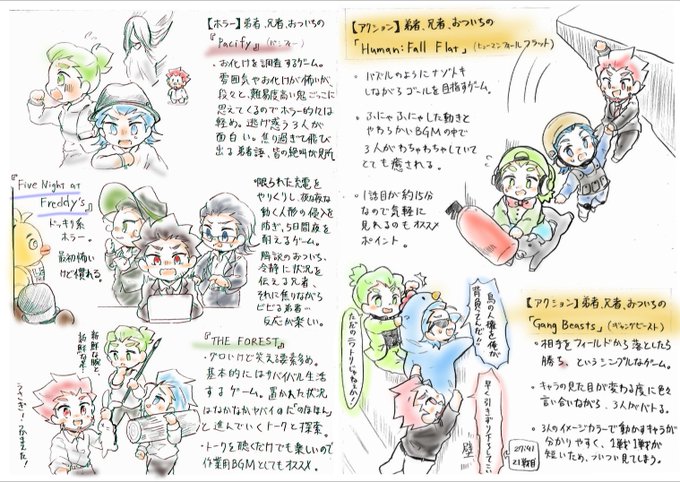 【ホラー】弟者、兄者、おついちの
『Pacify』(パシファー)
・お化けを調査するゲーム。
雰囲気やお化けが怖いが、
段々と、難易度高い鬼ごっこに
思えてくるのでホラー的には
軽め。逃げ惑う3人が
面白い。焦り過ぎて飛び
出る弟者語、皆の絶叫が見所
『Five Night at
Freddy's』
ドッキリ系
ホラー。
最初怖い
けど慣れる。
・限られた充電を
やりくりし、夜な夜な
動く人形の侵入を
防ぎ、5日間夜を
耐えるゲーム。
解説のおついち、
冷静に状況を
伝える兄者、
それに焦りながら
ビビる弟者…
反応が楽しい。
『THE FOREST』
・グロいけど笑える要素多め。
基本的にはサバイバル生活
するゲーム。置かれた状況
はなかなかヤバイのにのほほん
と進んでいくトークと探索。
・トークを聴くだけでも楽しいので
作業用BGMとしてもオススメ。
新鮮な腕と、
新鮮な足…
うさぎ!つかまえた!
【アクション】弟者、兄者、おついちの
「Human:Fall Flat」(ヒューマンフォールフラット)
・パズルのようにナゾトキ
しながらゴールを目指すゲーム。
・ふにゃふにゃした動きと
やわらかいBGMの中で
3人がわちゃわちゃしていて
とても癒される。
・1話目が約15分
なので気軽に
見れるのもオススメ
ポイント。
【アクション】弟者、兄者、おついちの
「Gang Beasts」(ギャングビースト)
・相手をフィールドから落としたら
勝ち、というシンプルなゲーム。
・キャラの見た目が変わる度に色々
言い合いながら、3人がバトる。
・3人のイメージカラーで動かすキャラが
分かりやすく、1戦1戦が
短いため、ついつい見てしまう。
鳥の人権を俺が
背負ってんだ!!
ただのニワトリじゃねぇか!
早く引きずり下ろしてこい
壁
27:41
21戦目